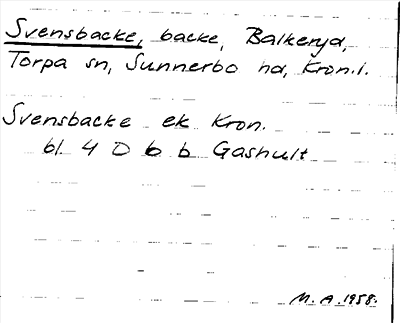 Svensbacke, backe, Balkeryd,
Torpa sn, Sunnerbo hd, Kron.l.
Svensbacke ek Kron.
bl 4 D b b Gashult
M. A. 1958.